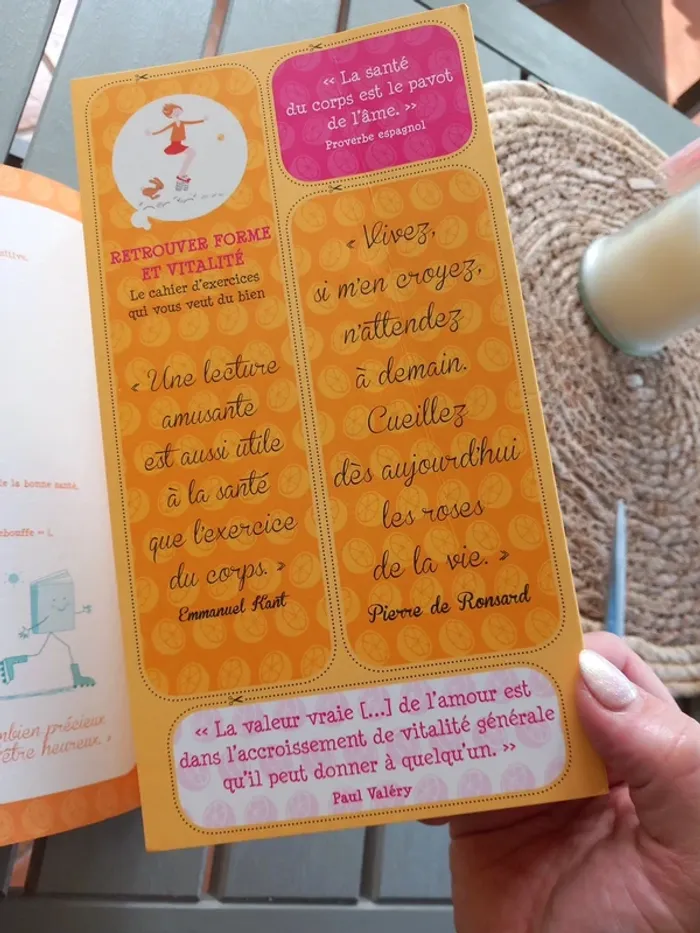 RETROUVER FORME
ET VITALITÉ
Le cahier d'exercices
qui vous veut du bien
« Une lecture
amusante
est aussi utile
à la santé
que l'exercice
du corps. »
Emmanuel Kant
« La santé
du corps est le pavot
de l'âme. »
Proverbe espagnol
« Vivez,
si m'en croyez,
n'attendez
à demain.
Cueillez
dès aujourd'hui
les roses
de la vie. »
Pierre de Ronsard
« La valeur vraie [...] de l'amour est
dans l'accroissement de vitalité générale
qu'il peut donner à quelqu'un. »
Paul Valéry
la bonne santé.
précieux
être heureux. »